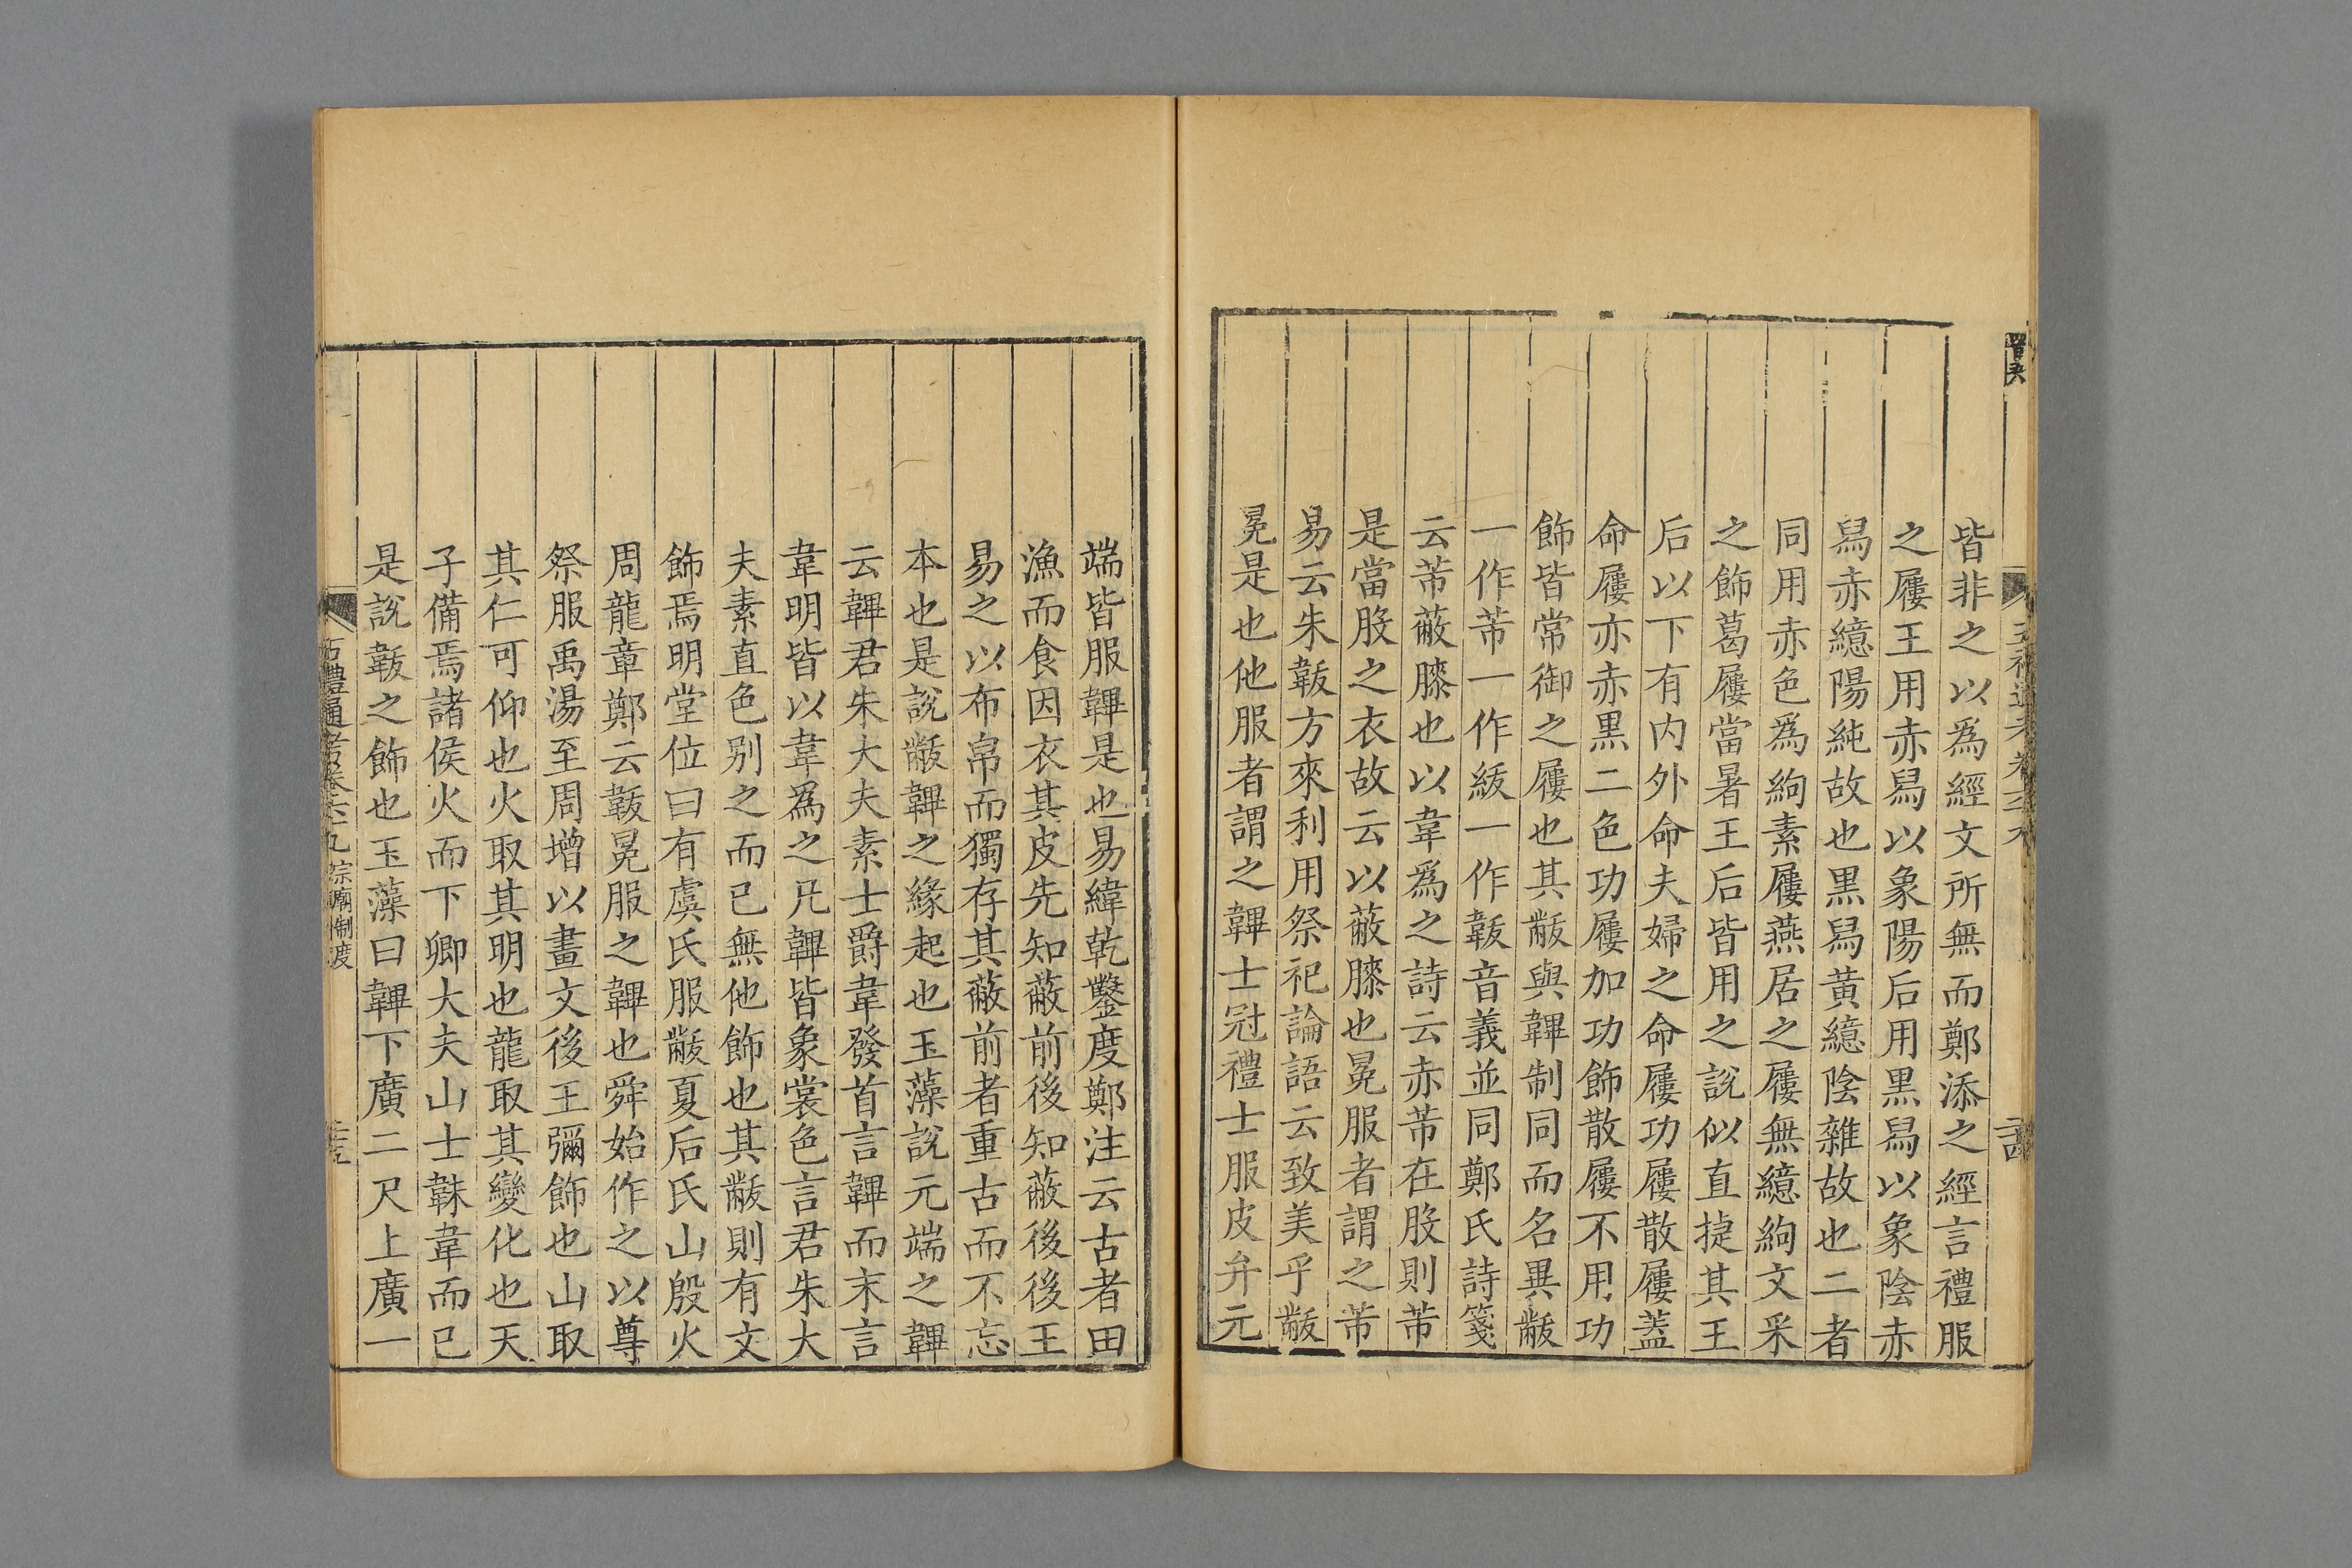 皆非之以爲經文所無而鄭添之經言禮服
之屨王用赤舄以象陽后用黒舄以象陰赤
舄赤繶陽純故也黒舄黄繶陰雜故也二者
同用赤色爲絇素屨燕居之屨無繶絇文采
之飾葛屨當暑王后皆用之說似直捷其王
后以下有内外命夫婦之命屨功屨散屨蓋
命屨亦赤黒二色功屨加功飾散屨不用功
飾皆常御之屨也其黻與韠制同而名異黻
一作芾一作紱一作韍音義並同鄭氏詩箋
云芾蔽膝也以韋爲之詩云赤芾在股則芾
是當股之衣故云以蔽膝也冕服者謂之芾
易云朱韍方來利用祭祀論語云致美乎黻
冕是也他服者謂之韠士冠禮士服皮弁元
端皆服韠是也易緯乾鑿度鄭注云古者田
漁而食因衣其皮先知蔽前後知蔽後後王
易之以布帛而獨存其蔽前者重古而不忘
本也是說黻韠之緣起也玉藻說元端之韠
云韠君朱大夫素士爵韋發首言韠而末言
韋明皆以韋爲之凡韠皆象裳色言君朱大
夫素直色别之而已無他飾也其黻則有文
飾焉明堂位曰有虞氏服黻夏后氏山殷火
周龍章鄭云韍冕服之韠也舜始作之以尊
祭服禹湯至周增以畫文後王彌飾也山取
其仁可仰也火取其明也龍取其變化也天
子備焉諸侯火而下卿大夫山士韎韋而已
是說韍之飾也玉藻曰韠下廣二尺上廣一
禮通考卷六十九 宗廟制度